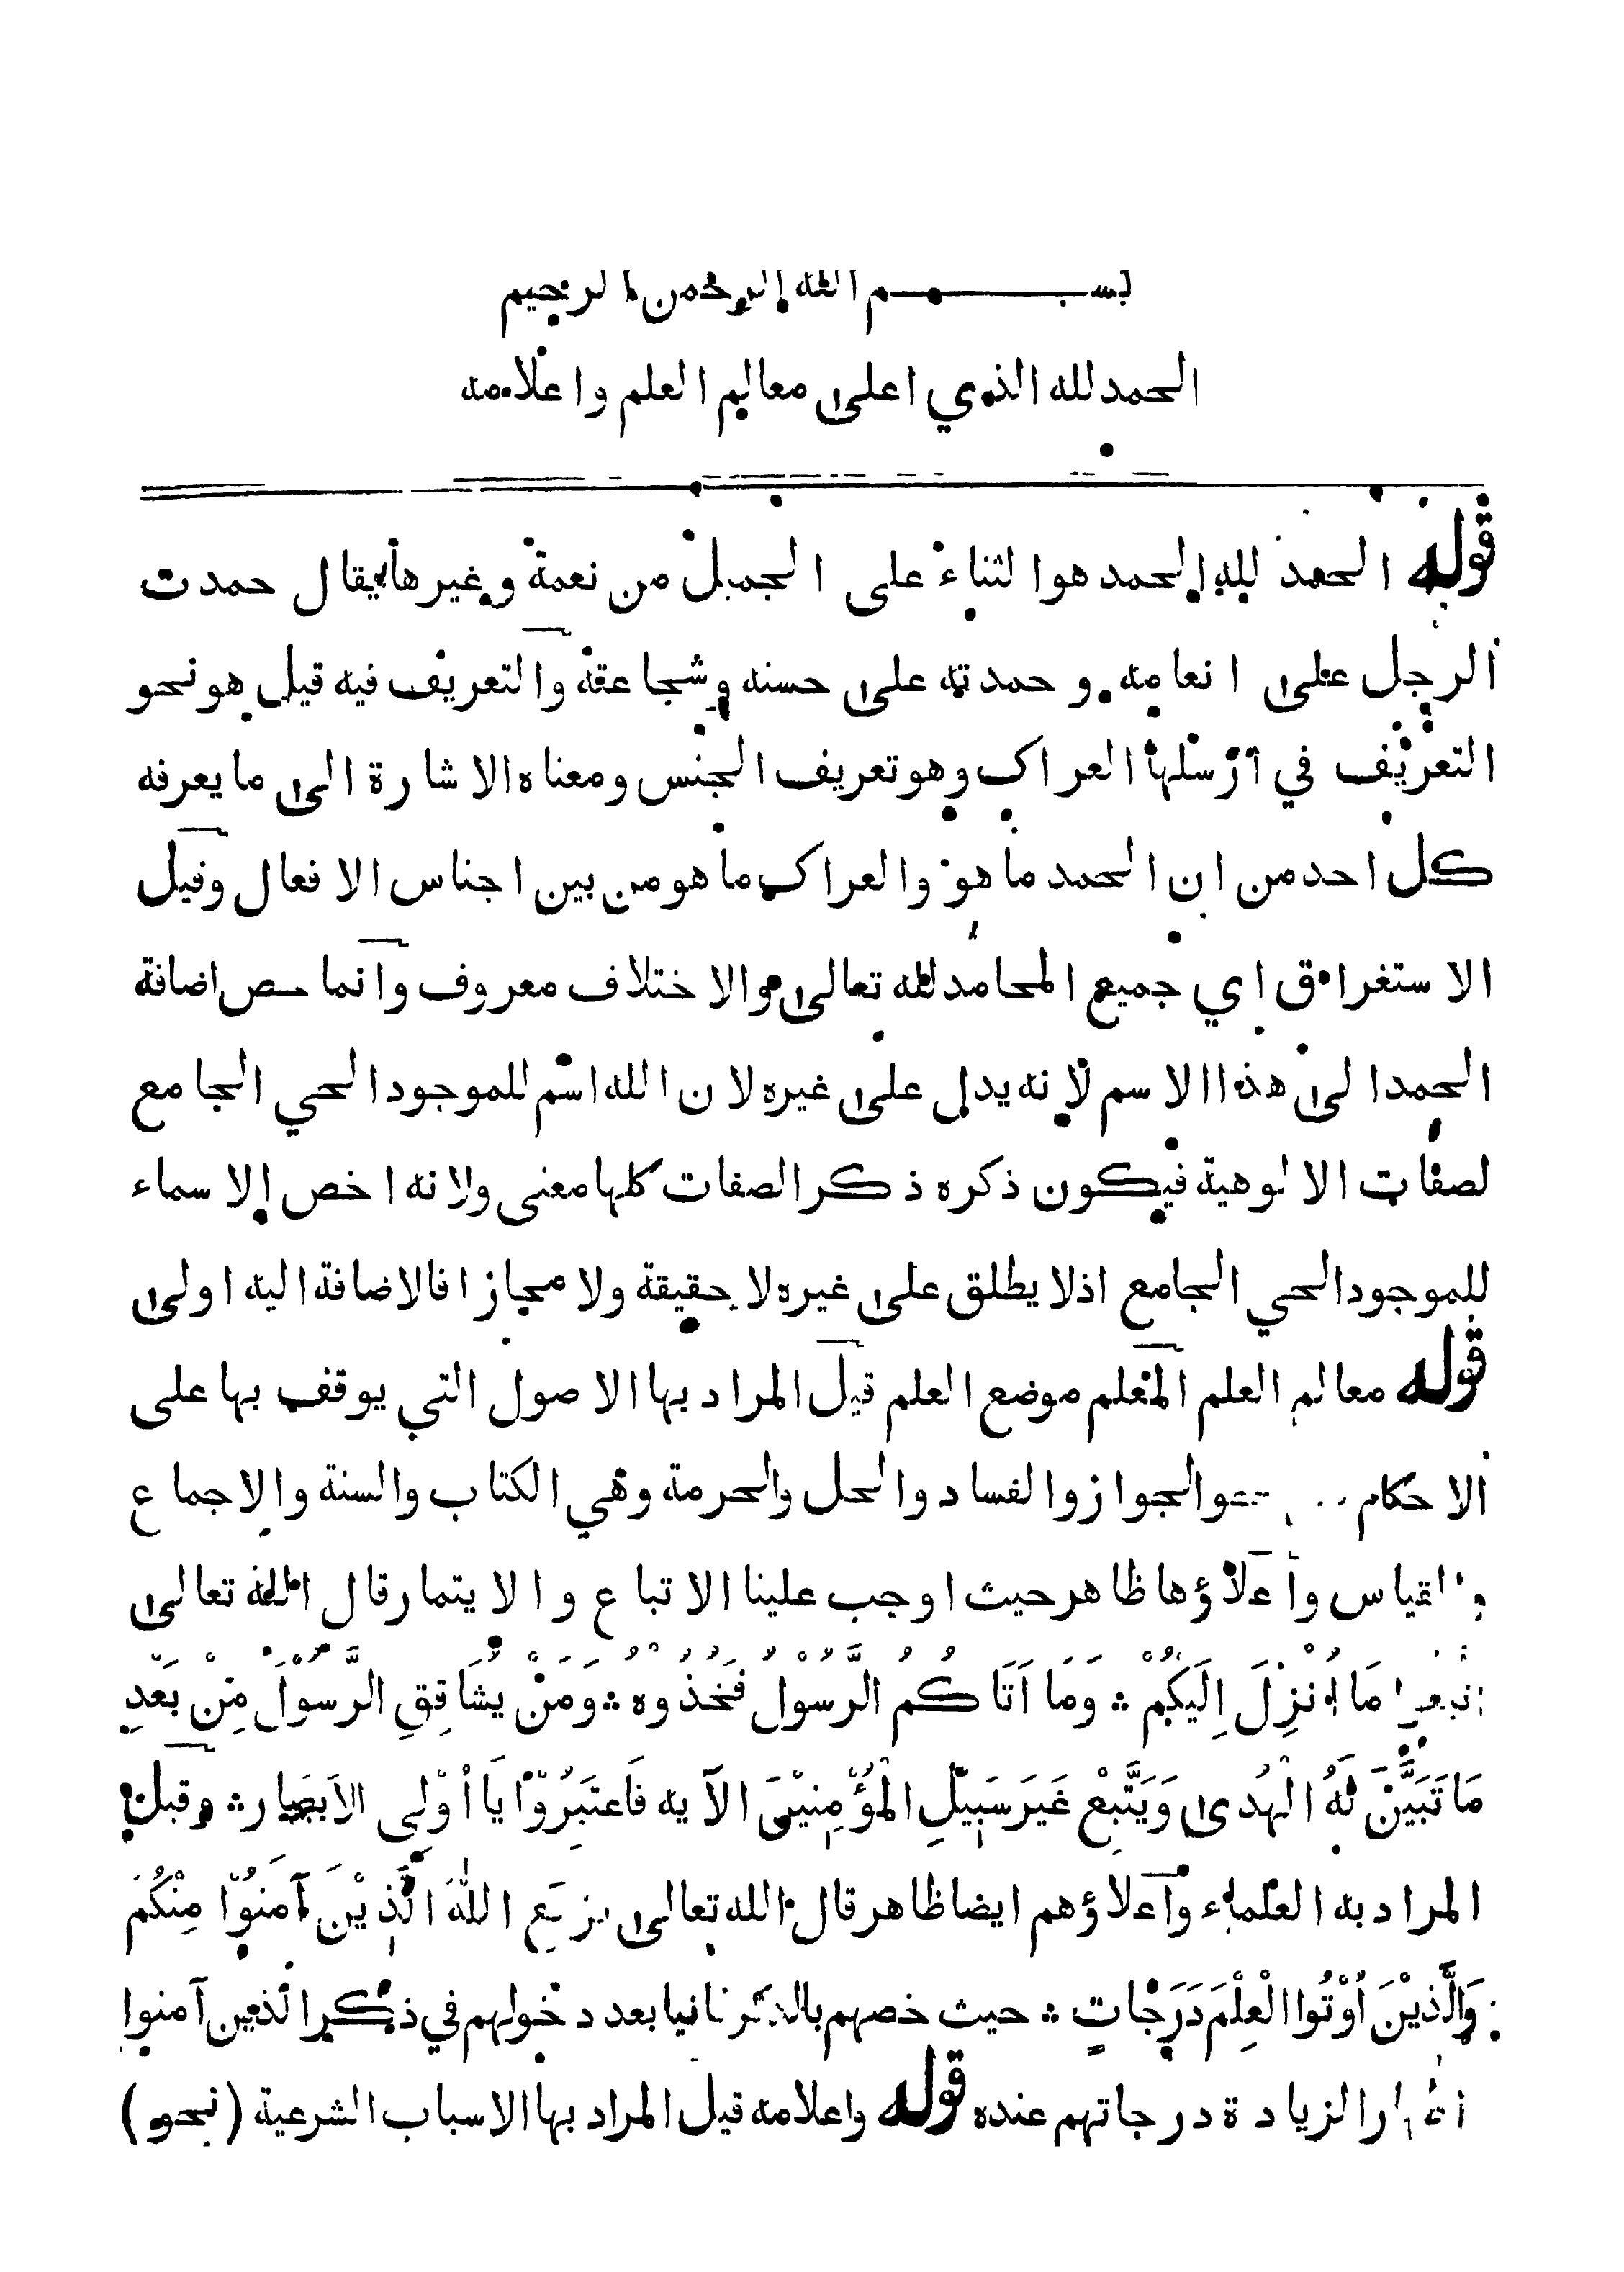 بســـــم الله الرحمن الرحيم
الحمد لله الذي اعلى معالم العلم واعلامه
قوله الحمد لله الحمد هو الثناء على الجميل من نعمة وغيرها يقال حمدت
الرجل على انعامه وحمدته على حسنه وشجاعته والتعريف فيه قيل هو نحو
التعريف في ارسلها العراك وهو تعريف الجنس ومعناه الاشارة الى ما يعرفه
كل احد من ان الحمد ما هو والعراك ما هو من بين اجناس الافعال وقيل
الاستغراق اي جميع المحامد لله تعالى والاختلاف معروف وانما خص اضافة
الحمد الى هذا الاسم لانه يدل على غيره لان الله اسم للموجود الحي الجامع
لصفات الالوهية فيكون ذكره ذكر الصفات كلها معنى ولانه اخص الاسماء
للموجود الحي الجامع اذ لا يطلق على غيره لا حقيقة ولا مجازا فالاضافة اليه اولى
قوله معالم العلم المعلم موضع العلم قيل المراد بها الاصول التي يوقف بها على
الاحكام نحو الجواز والفساد والحل والحرمة وهي الكتاب والسنة والاجماع
والقياس واعلاؤها ظاهر حيث اوجب علينا الاتباع والايتمار قال الله تعالى
اتبعوا مَا اُنْزِلَ اِلَيكُم ۞ وَمَا اَتَاكُمُ الرَّسُوْلُ فَخُذُوه ۞ وَمَنْ يُشَاقِقِ الرَّسُوْلَ مِنْ بَعْدِ
مَا تَبَيَّنَ لَهُ الْهُدى وَيَتَّبِعْ غَيرَ سَبِيْلِ الْمُؤْمِنِيْنَ الآيه فَاعتَبِرُوْا يَا اُوْلِى الاَبصَار ۞ وقيل
المراد به العلماء واعلاؤهم ايضا ظاهر قال الله تعالى يرفع اللهُ الَّذِيْنَ آمَنُوْا مِنْكُمْ
وَالَّذِيْنَ اُوْتُوا الْعِلْمَ دَرَجَاتٍ ۞ حيث خصهم بالذكر ثانيا بعد دخولهم في ذكر الذين آمنوا
لزيادة درجاتهم عنده قوله واعلامه قيل المراد بها الاسباب الشرعية (نحو)